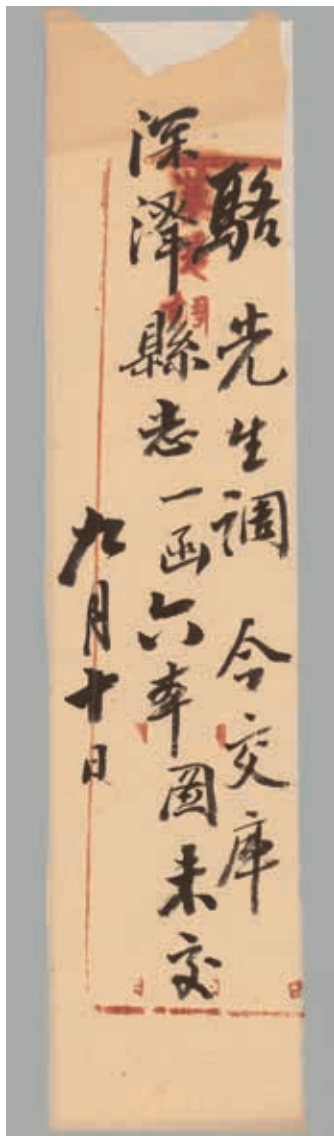 駱先生調 今交庫
深澤縣志一函六本圖未交
九月十日